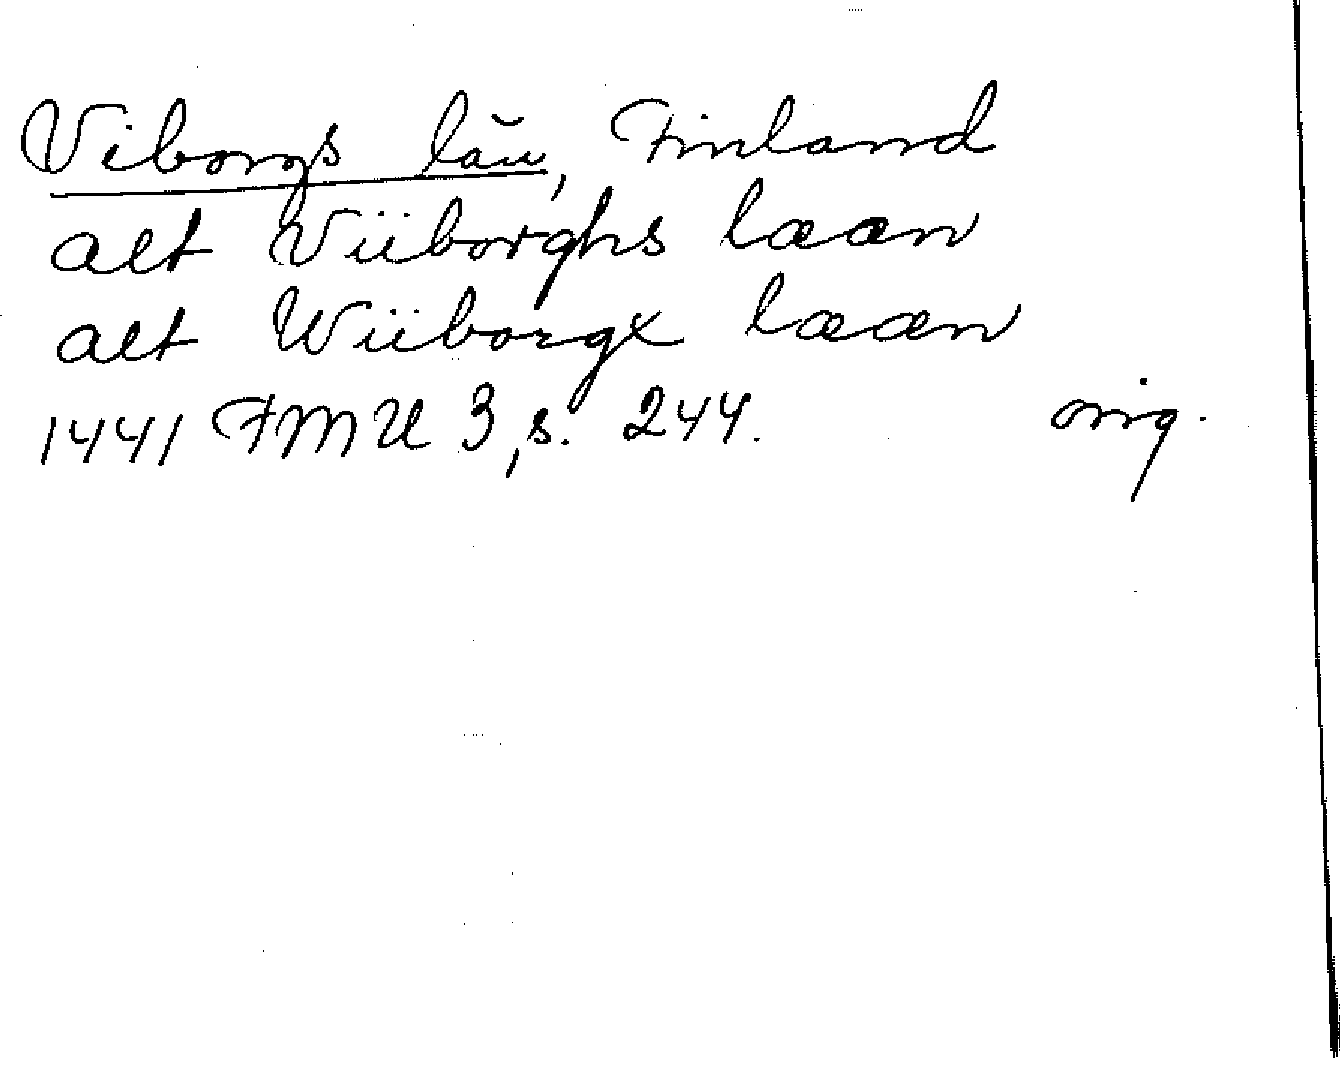 Viborgs län, Finland
alt Wiiborghs lææn
alt Wiiborgx lææn
1441 FMU 3, s. 244. orig.